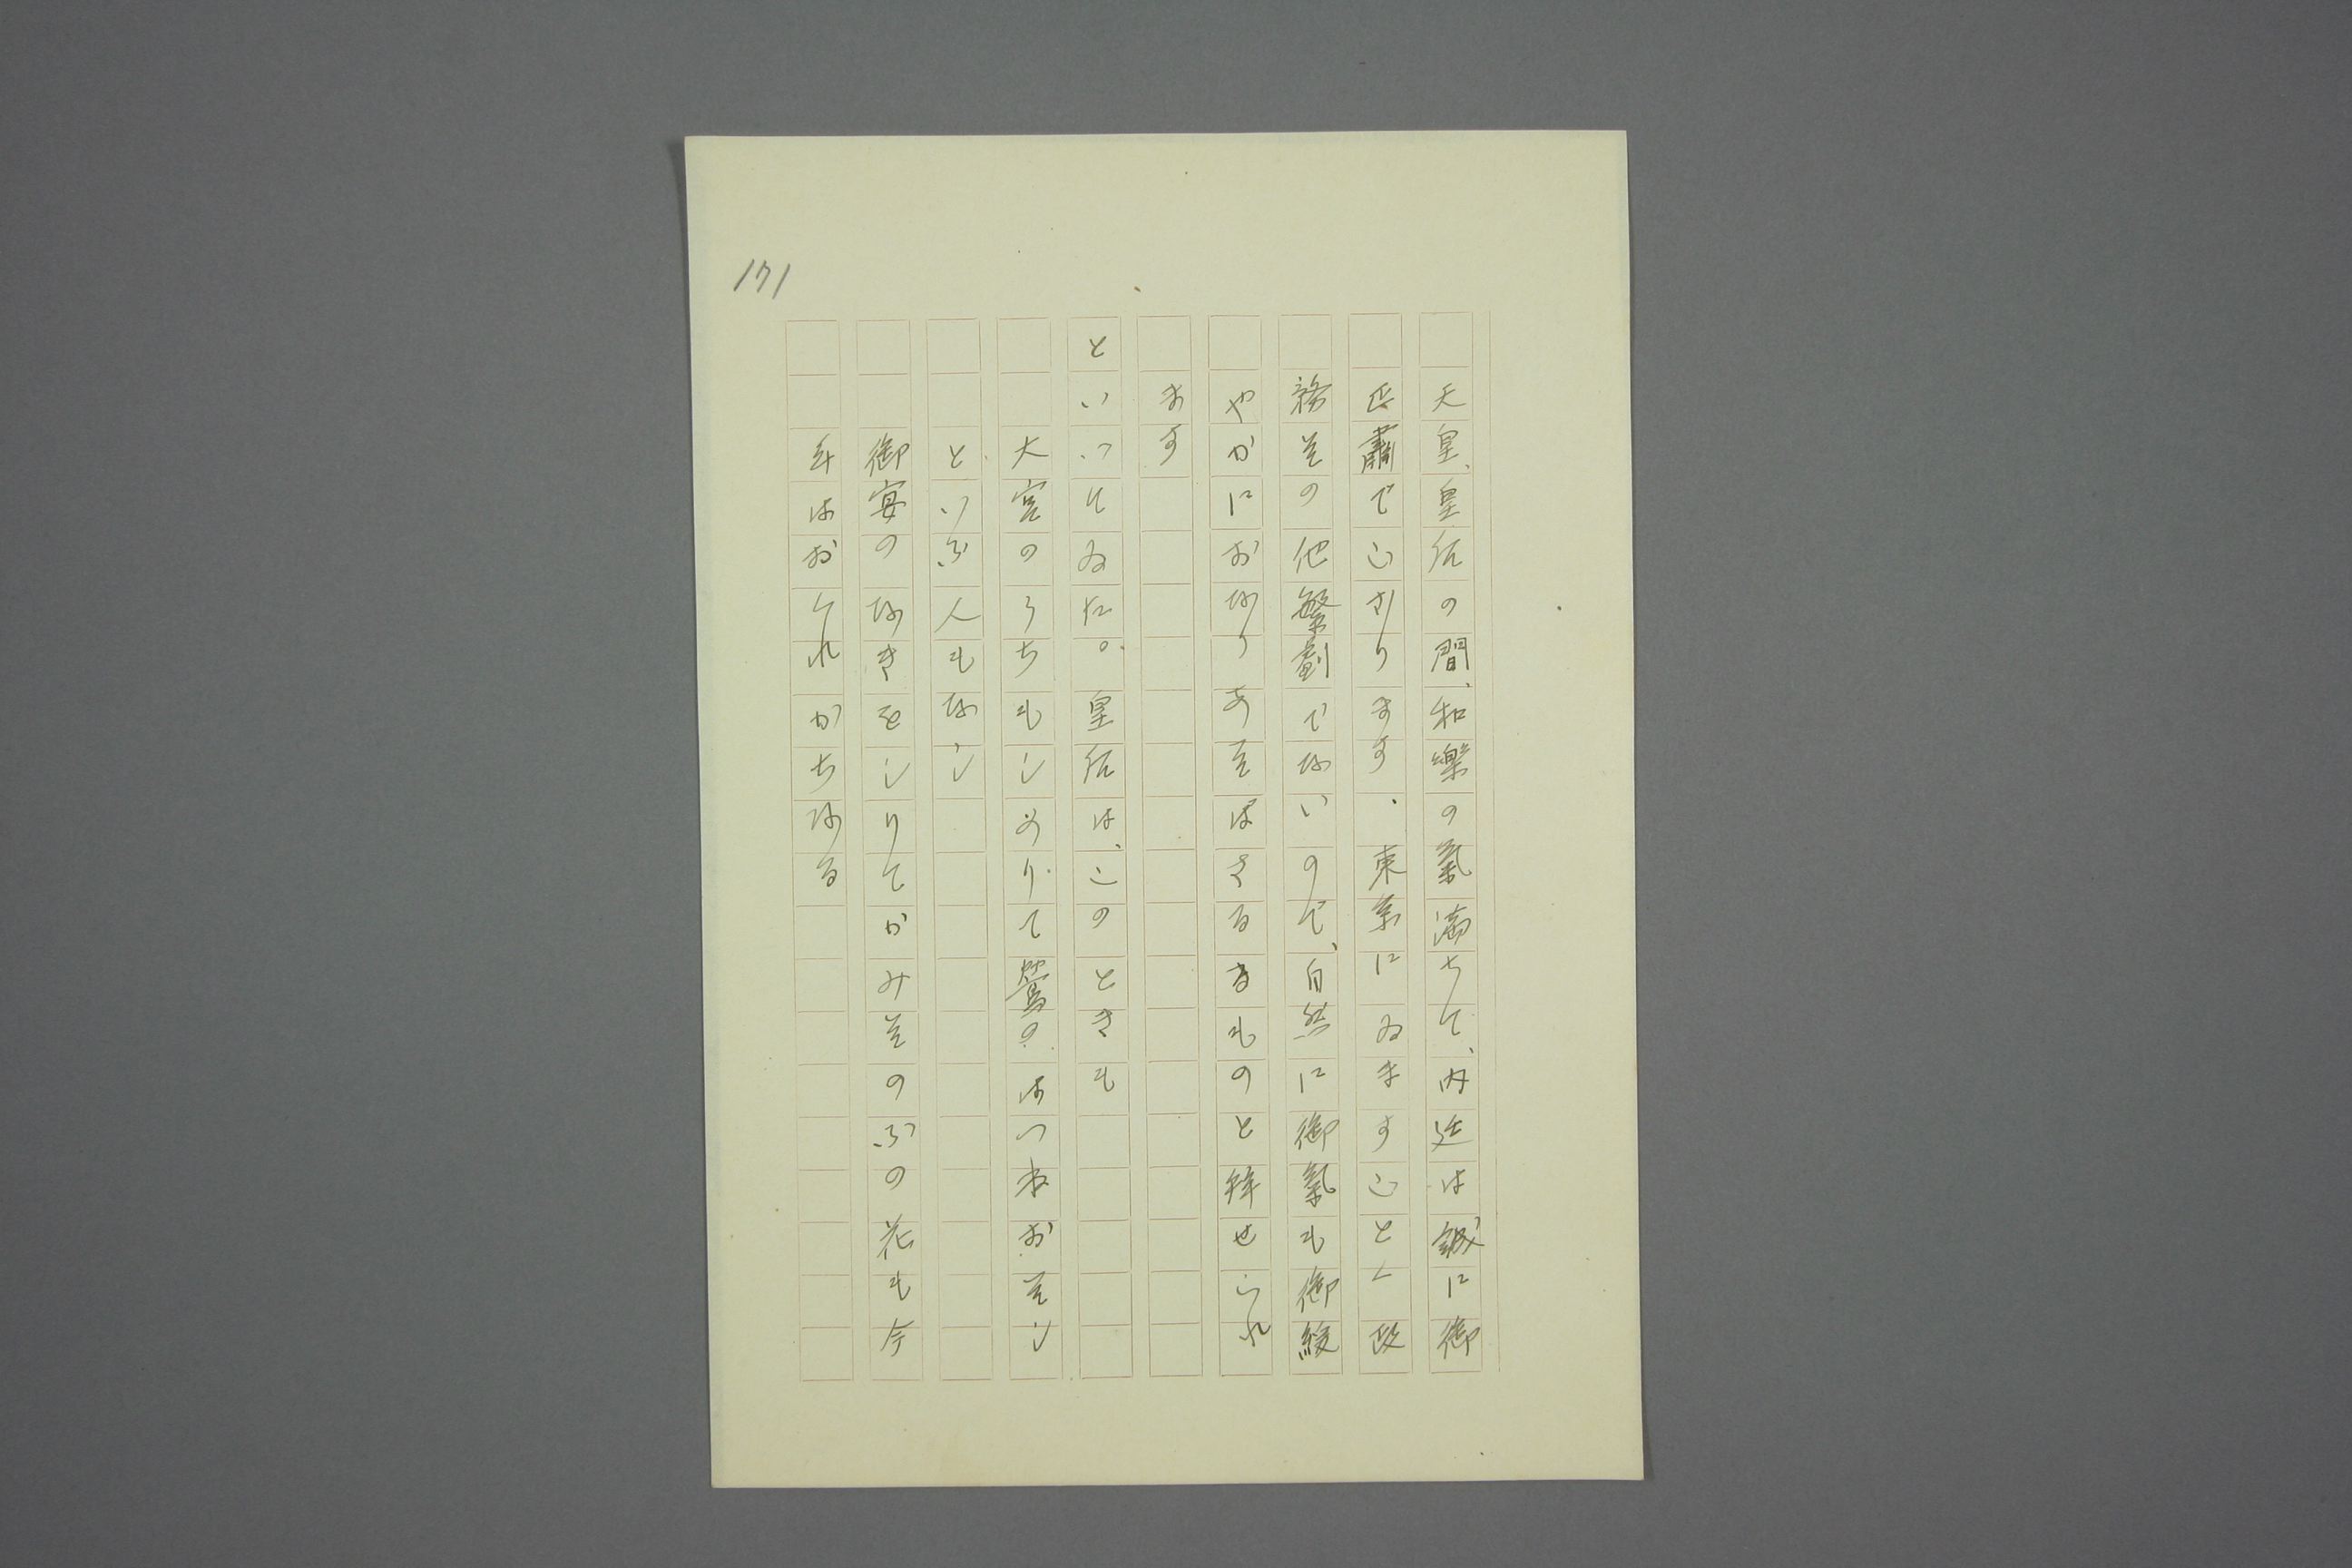 171
天皇、皇后の間、和樂の氣満ちて、内廷は誠に御
正肅でございます、東京にゐますことゝ政
務その他繁劇でないので、自然に御氣も御緩
やかにおなりあそばさるるものと拝せられ
ます
といつてゐた。皇后は、このときも
大宮のうちもしめりて鶯のはつねおそし
といふ人もなし
御宴のなきをしりてかみそのふの花も今
年はおくれがちなる